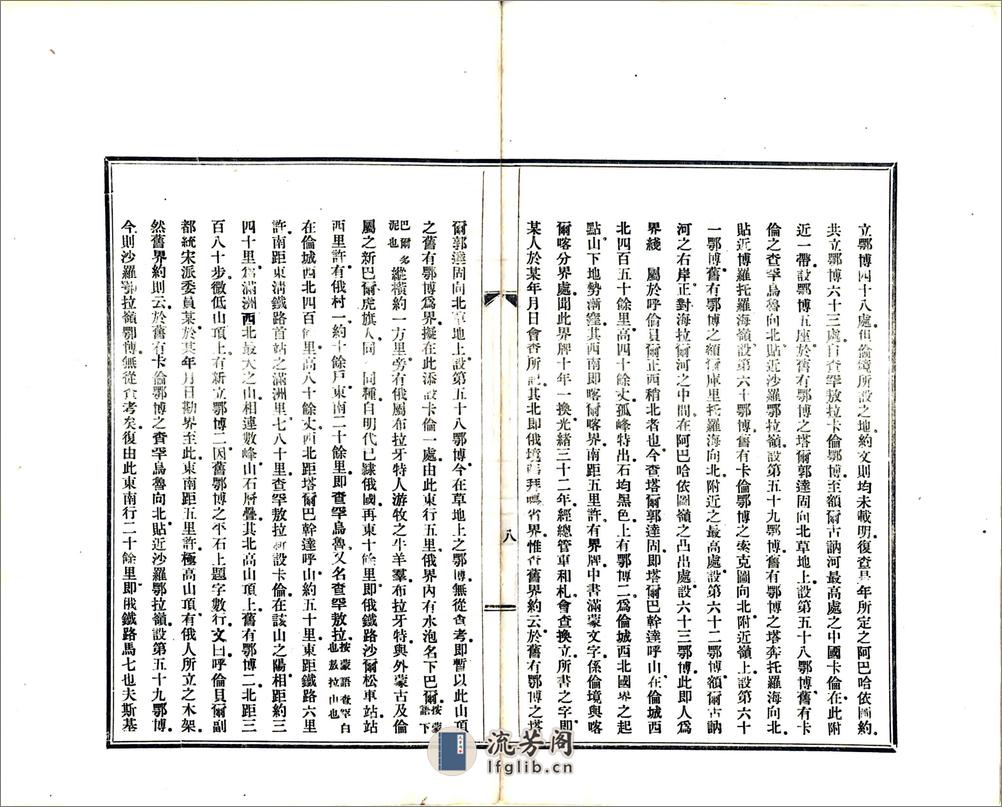 立鄂博四十八處但當時所設之地約文則均未載明復查是年所定之阿巴哈依圖約
共立鄂博六十三處自查罕敖拉卡倫鄂博至額爾古訥河最高處之中國卡倫在此附
近一帶設鄂博五座於舊有鄂博之塔爾郭達固向北草地上設第五十八鄂博舊有卡
倫之查罕烏魯向北貼近沙羅鄂拉嶺設第五十九鄂博舊有鄂博之塔奔托羅海向北
貼近博羅托羅海嶺設第六十鄂博舊有卡倫鄂博之索克圖向北附近嶺上設第六十
一鄂博舊有鄂博之額爾庫里托羅海向北附近之最高處設第六十二鄂博額爾古訥
河之右岸正對海拉爾河之中間在阿巴哈依圖嶺之凸出處設六十三鄂博此即人為
界綫 屬於呼倫貝爾正西稍北者也今查塔爾郭達固即塔爾巴幹達呼山在倫城西
北四百五十餘里高四十餘丈孤峰特出石均黑色上有鄂博二為倫城西北國界之起
點山下地勢漸窪其西南即喀爾喀界南距五里許有界牌中書滿蒙文字係倫境與喀
爾喀分界處聞此界牌十年一換光緒三十二年經總管車和札會查換立所書之字即
某人於某年月日會查所記其北即俄境薩拜喀省界惟查舊界約云於舊有鄂博之塔
八
爾郭達固向北草地上設第五十八鄂博今在草地上之鄂博無從查考即暫以此山頂
之舊有鄂博為界擬在此添設卡倫一處由此東行五里俄界內有水泡名下巴爾按蒙語下
巴爾多泥也縱橫約一方里旁有俄屬布拉牙特人游牧之牛羊羣布拉牙特與外蒙古及倫
屬之新巴爾虎旗人同 同種自明代已隸俄國再東十餘里即俄鐵路沙爾松車站站
西里許有俄村一約十餘戶東南二十餘里即查罕烏魯又名查罕敖拉按蒙語查罕白也敖拉山也
在倫城西北四百 里高八十餘丈西北距塔爾巴幹達呼山約五十里東距鐵路六里
許南距東清鐵路首站之滿洲里七八十里查罕敖拉新設卡倫在該山之陽相距約三
四十里為滿洲西北最大之山相連數峰山石層疊其北高山頂上舊有鄂博二北距三
百八十步微低山頂上有新立鄂博二因舊鄂博之平石上題字數行文曰呼倫貝爾副
都統宋派委員某於某年月日勘界至此東南距五里許極高山頂有俄人所立之木架
然舊界約則云於舊有卡倫鄂博之查罕烏魯向北貼近沙羅鄂拉嶺設第五十九鄂博
今則沙羅鄂拉嶺鄂博無從查考矣復由此東南行二十餘里即俄鐵路馬七也夫斯基
流芳阁
lfglib.cn